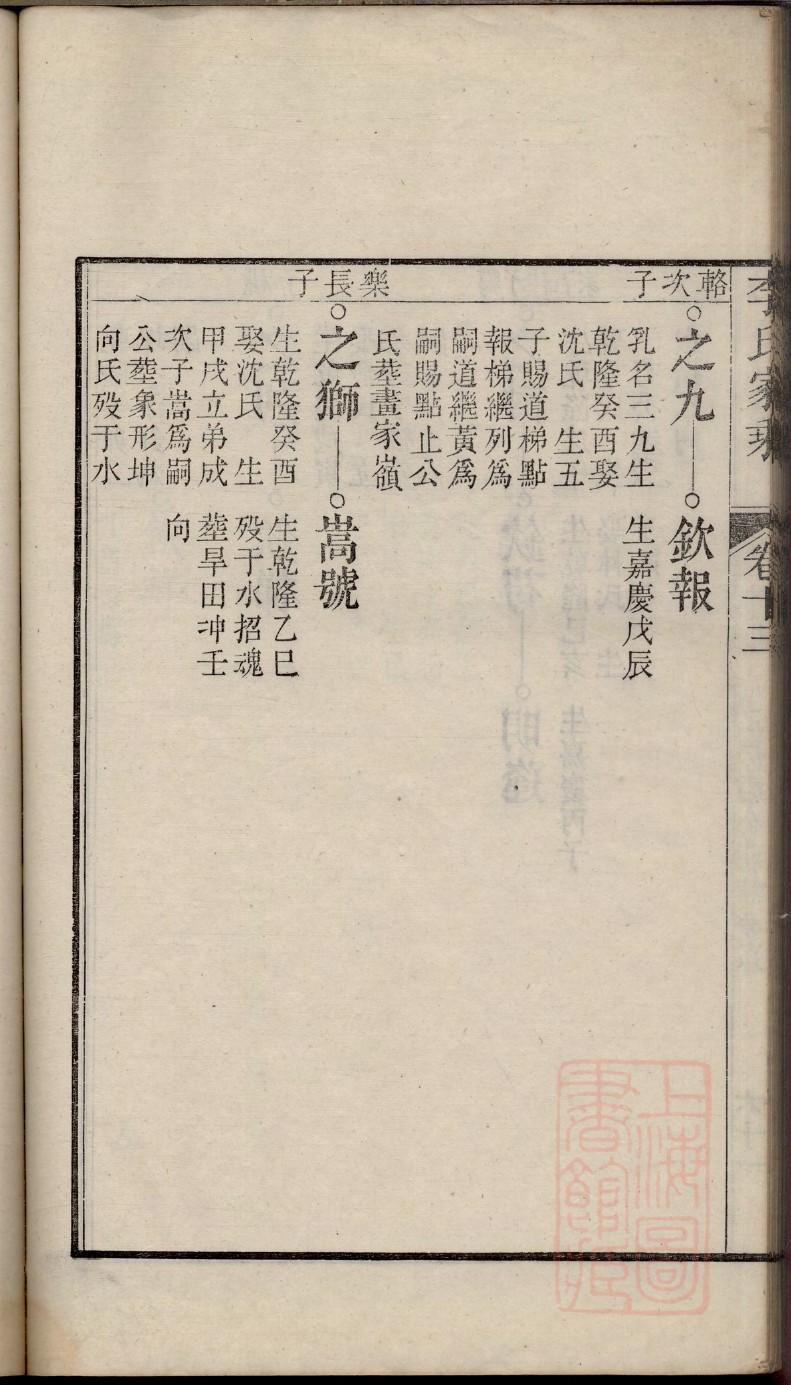 李氏家乘
卷十三
輅次子
之九
乳名三九生
乾隆癸酉娶
沈氏　生五
子賜道梯點
報梯繼列爲
嗣道繼黃爲
嗣賜點止公
氏塟畫家嶺
欽報
生嘉慶戊辰
樂長子
之獅
生乾隆癸酉
娶沈氏　生
甲戌立弟成
次子嵩爲嗣
公塟象形坤
向氏殁于水
嵩號
生乾隆乙巳
殁于水招魂
塟旱田冲壬
向
上海圖
書館藏